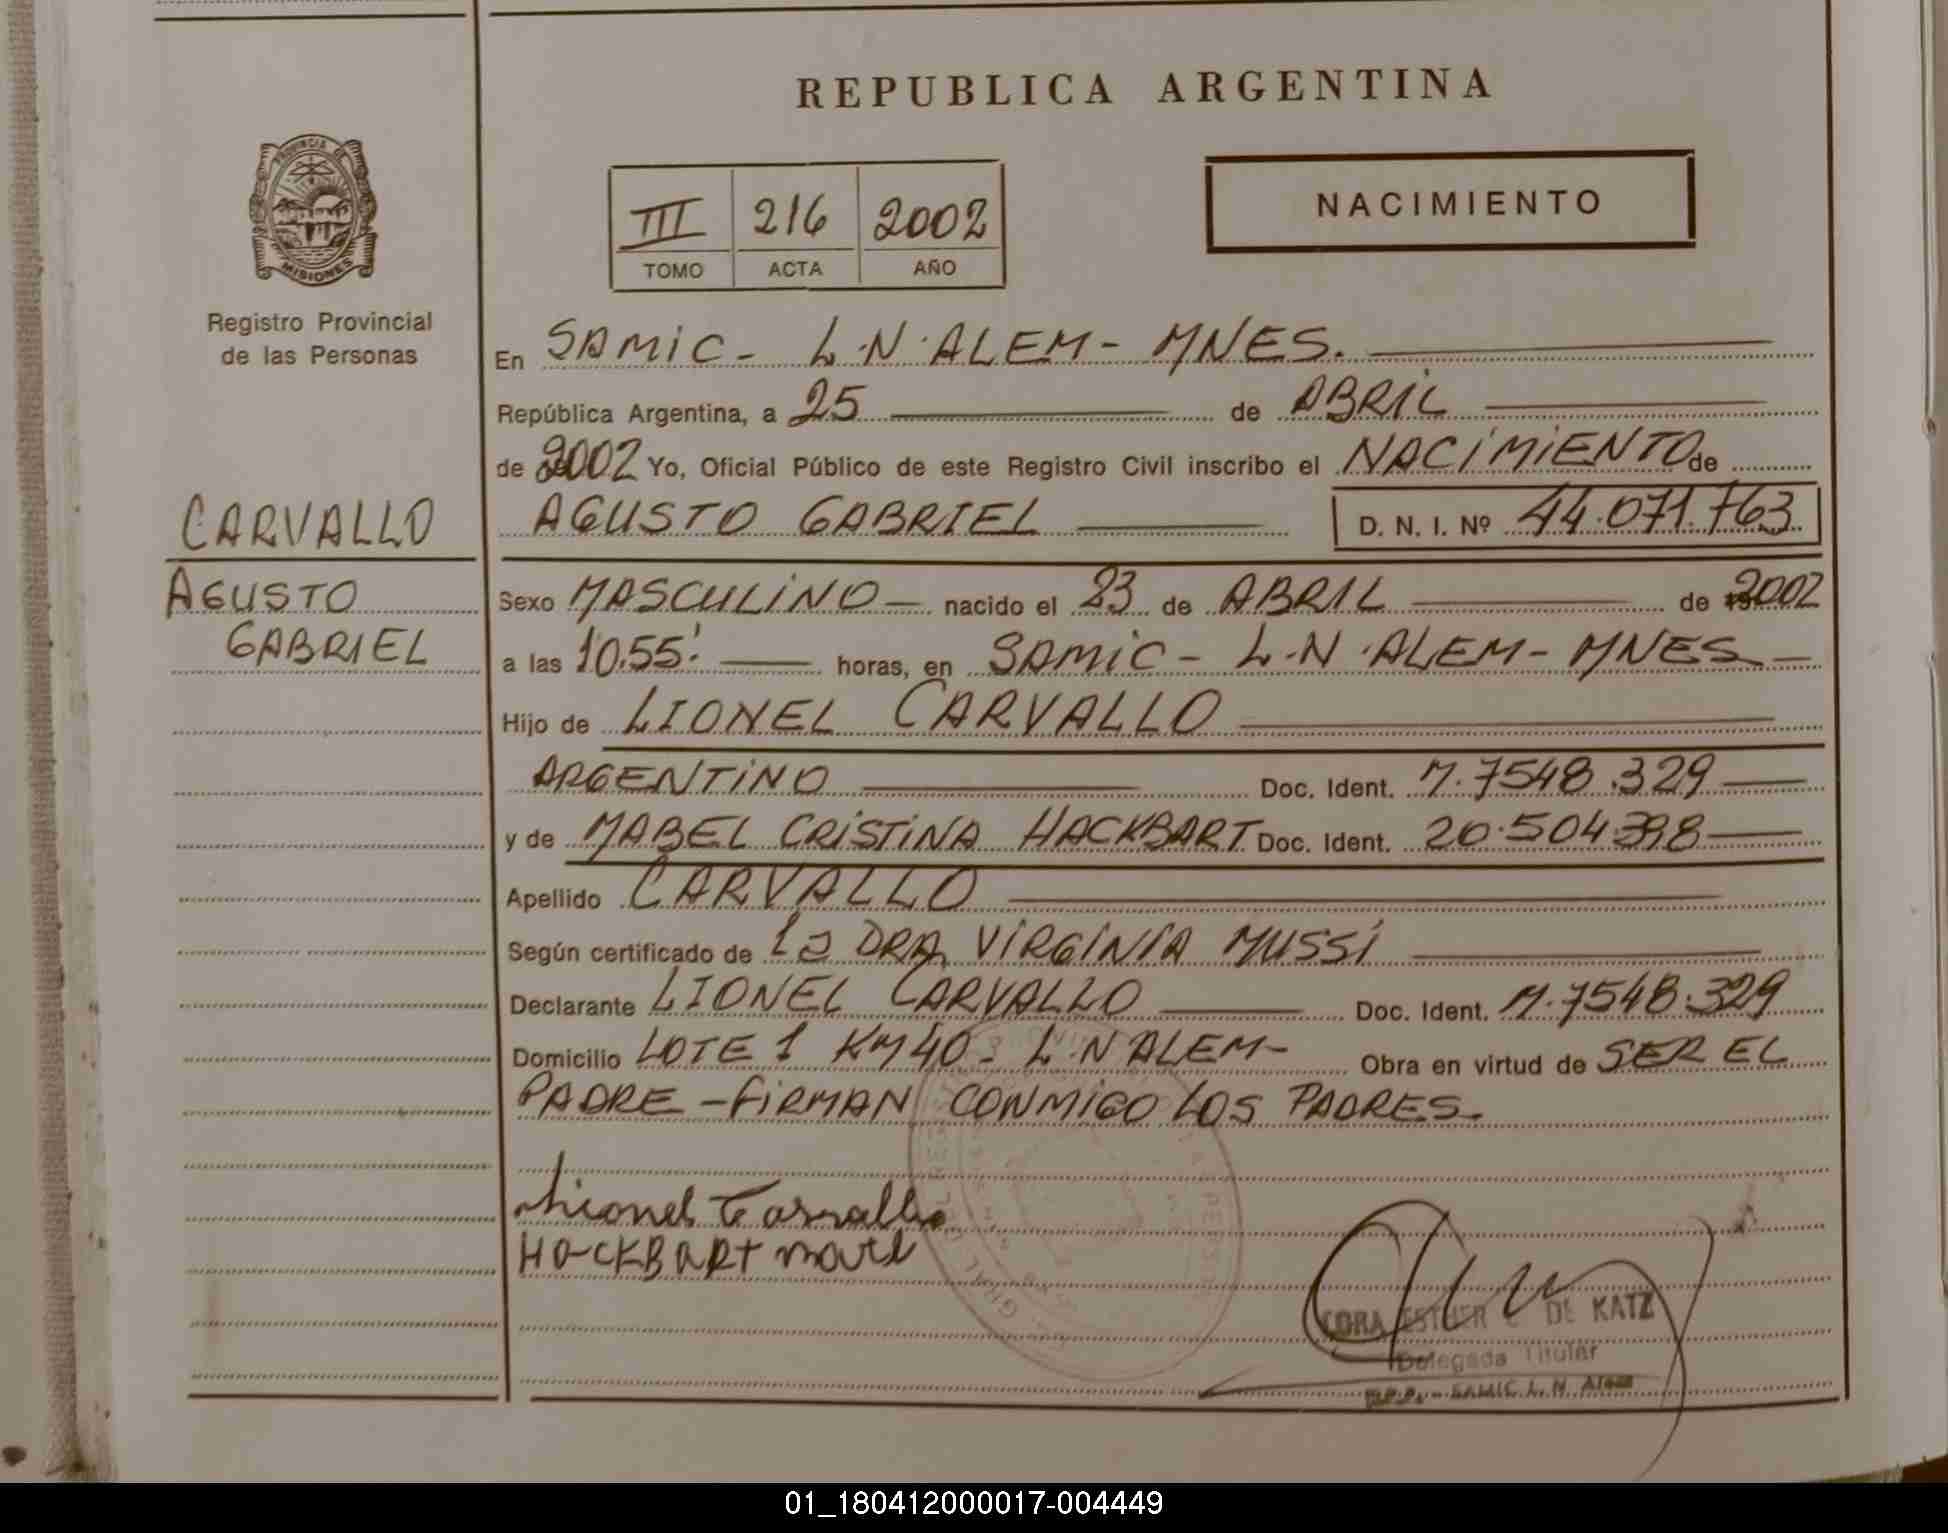 REPUBLICA ARGENTINA
PROVINCIA DE
MISIONES
Registro Provincial
de las Personas
III 216 2002
TOMO ACTA AÑO
NACIMIENTO
En SAMIC - L.N.ALEM - MNES.
República Argentina, a 25 de ABRIL
de 2002 Yo, Oficial Público de este Registro Civil inscribo el NACIMIENTO de
CARVALLO
AGUSTO GABRIEL D. N. I. Nº 44.071.763
AGUSTO
GABRIEL
Sexo MASCULINO - nacido el 23 de ABRIL de 2002
a las 10.55' horas, en SAMIC - L.N.ALEM - MNES -
Hijo de LIONEL CARVALLO
ARGENTINO Doc. Ident. M.7548.329
y de MABEL CRISTINA HACKBART Doc. Ident. 20.504.398
Apellido CARVALLO
Según certificado de la DRA VIRGINIA MUSSI
Declarante LIONEL CARVALLO Doc. Ident. M.7548.329
Domicilio LOTE 1 KM 40 - L.N ALEM - Obra en virtud de SER EL
PADRE - FIRMAN CONMIGO LOS PADRES.
Lionel Carvallo
HACKBART
CORA ESTHER C DE KATZ
Delegada Titular
R.P.P. - SAMIC L. N. Alem
01_180412000017-004449